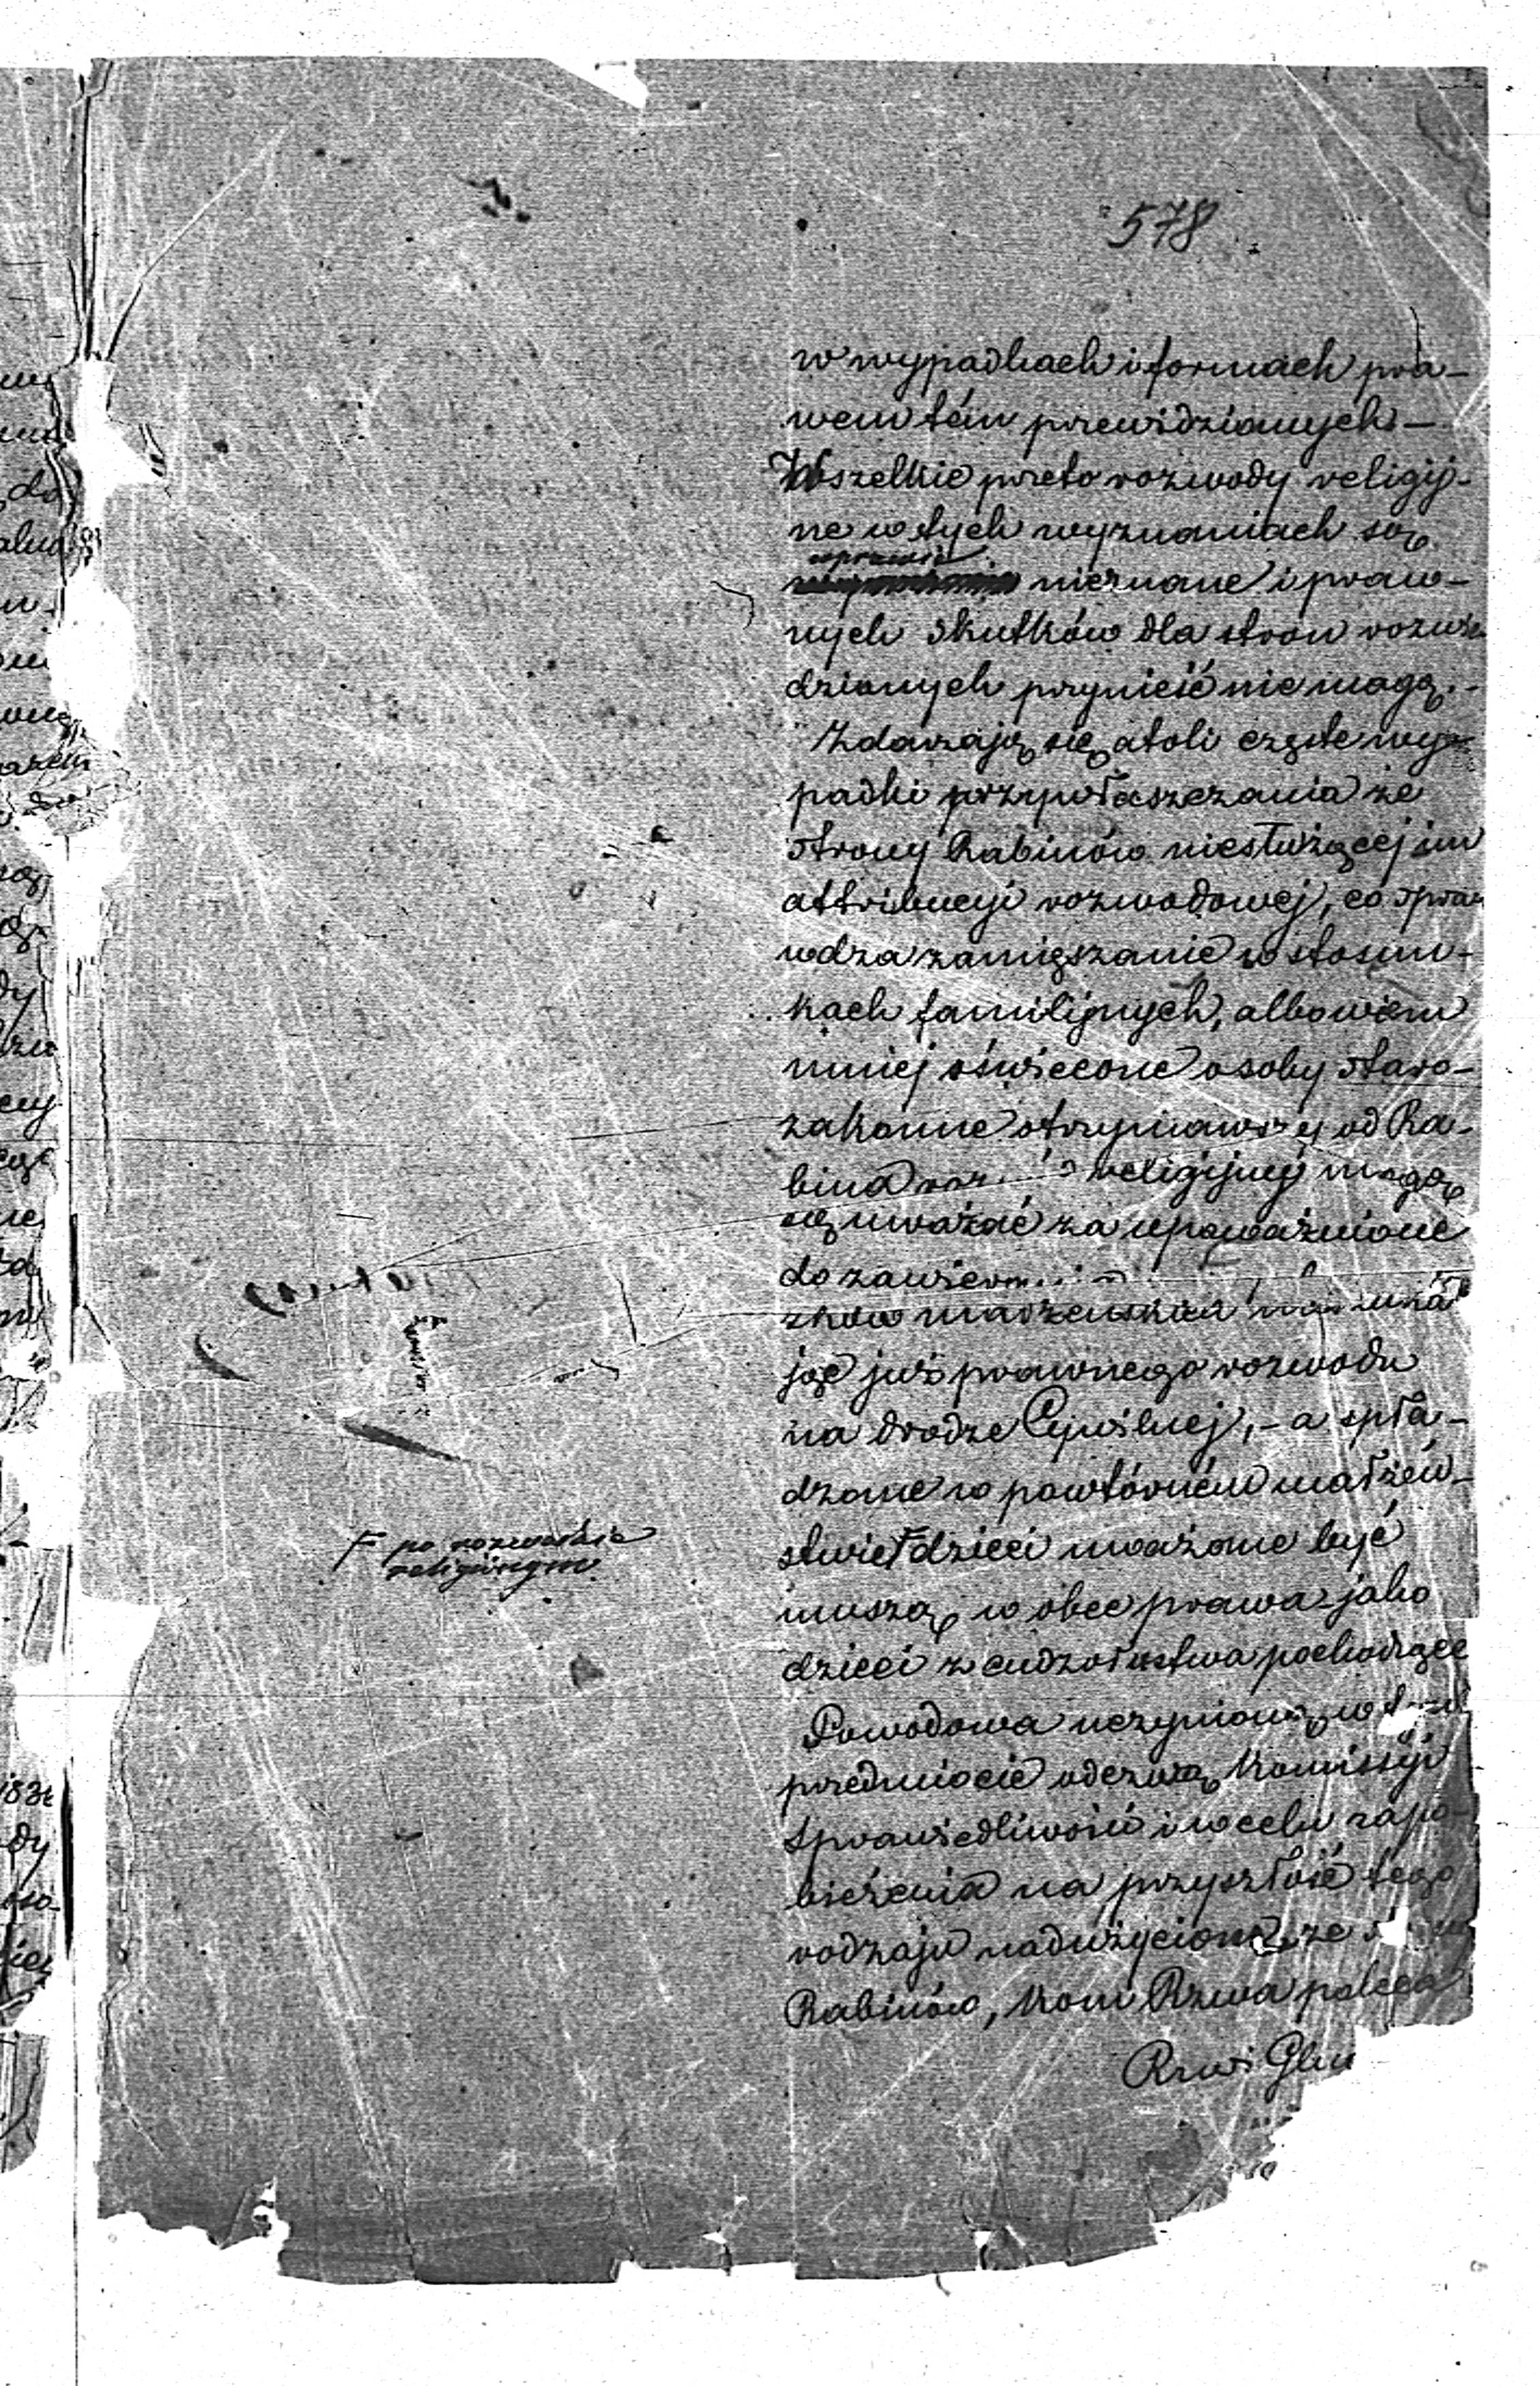 578
w wypadkach i formach pra-
wem tém przewidzianych –
Wszelkie przeto rozwody religij-
ne w tych wyznaniach są
w prawie
nieznane i praw-
nych skutków dla stron rozwie
dzionych przynieść nie mogą. -
Zdarzają się atoli częste wy-
padki przywłaszczania ze
strony Rabinów niesłużącej im
attribucyi rozwodowej, co spra-
wdza zamięszanie w stosun-
kach familijnych, albowiem
mniej oświecone osoby staro-
zakonne otrzymawszy od Ra-
bina religijny mogą
się uważać za upoważnione
do
ją&c już prawnego rozwodu
na drodze Cywilnej, – a spło-
dzone w powtórném małżeń-
stwie F dzieci uważane być
muszą w obec prawa jako
dzieci z cudzołóstwa pochodzące
F po rozwodzie
religijnym.
Powodowana uczynioną w
przedmiocie odezwą Kommissyi
Sprawiedliwości i w celu zapo-
bieżenia na przyszłość tego
rodzaju nadużyciom ze
Rabinów, Kom Rzwa poleca
Rzwi Gbu